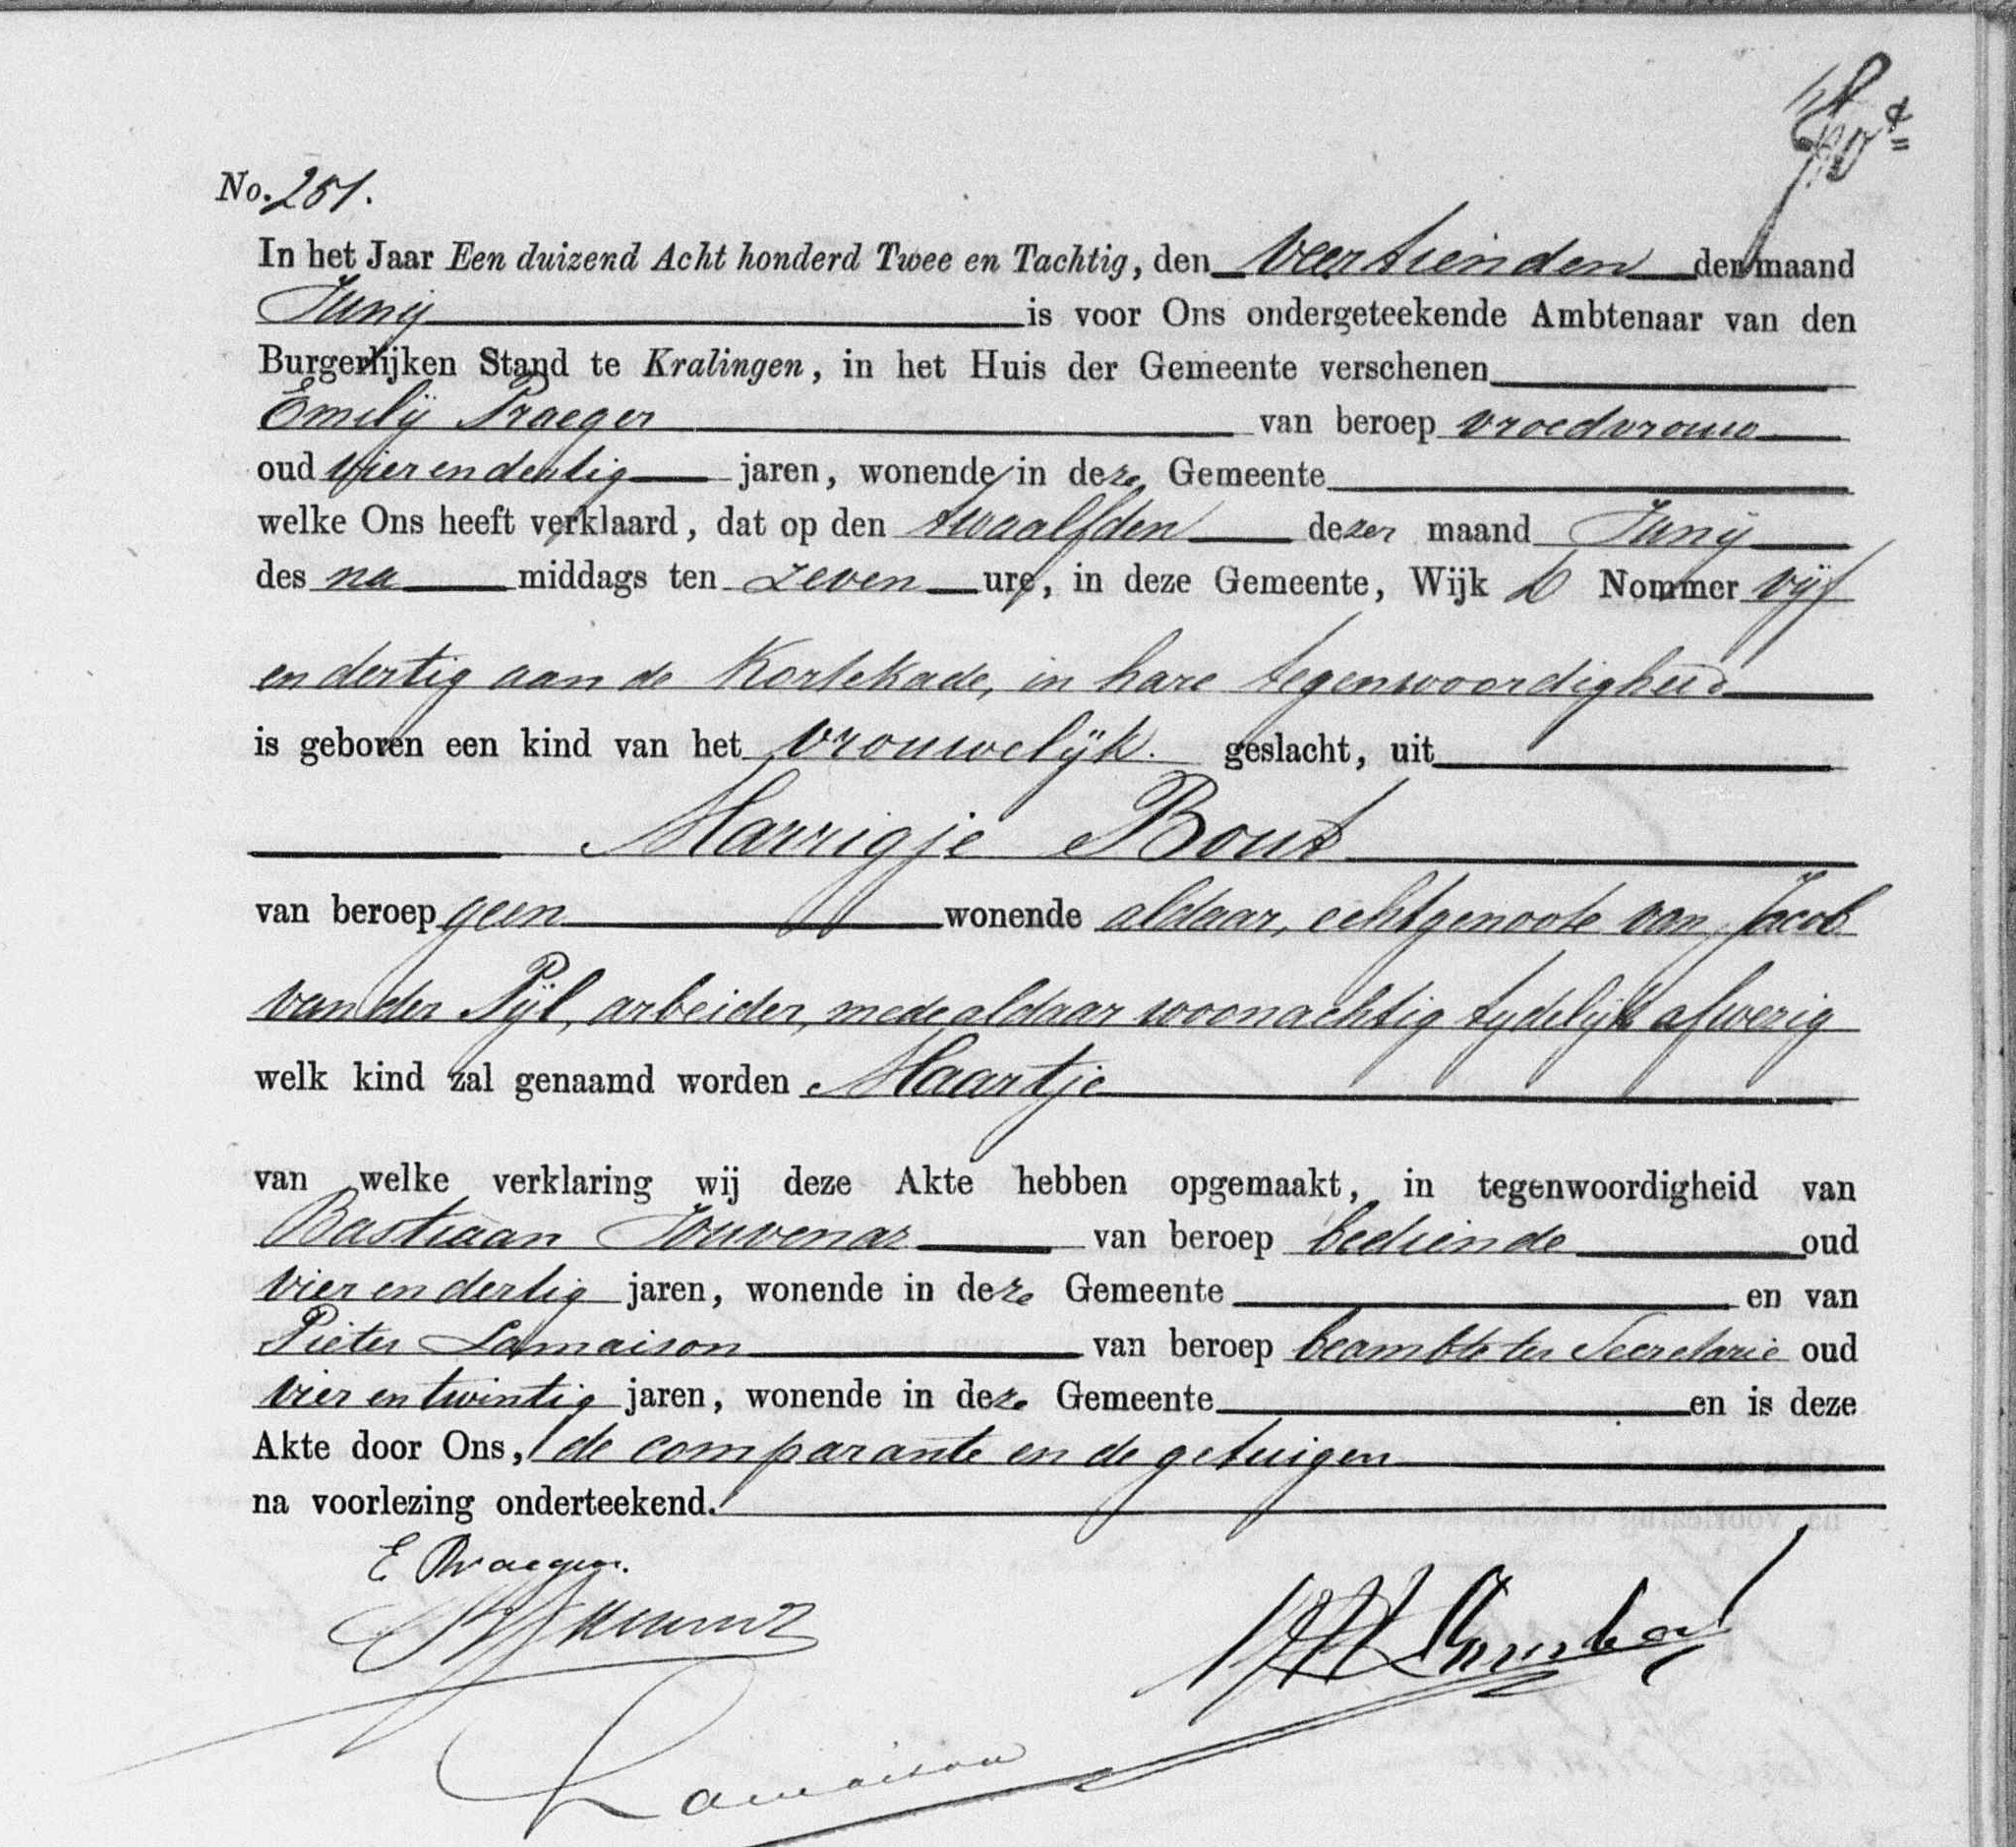 No. 251.
In het Jaar Een duizend Acht honderd Twee en Tachtig, den veertienden der maand
Junij is voor Ons ondergeteekende Ambtenaar van den
Burgerlijken Stand te Kralingen, in het Huis der Gemeente verschenen
Emilij Praeger van beroep vroedvrouw
oud vier en dertig jaren, wonende in deze Gemeente
welke Ons heeft verklaard, dat op den twaalfden dezer maand Junij
des na middags ten zeven ure, in deze Gemeente, Wijk D Nommer vijf
en dertig aan de Kortekade, in hare tegenwoordigheid
is geboren een kind van het vrouwelijk geslacht, uit
Marrigje Bout
van beroep geen wonende aldaar, echtgenoote van Jacob
van der Pijl, arbeider, mede aldaar woonachtig tydelijk afwezig
welk kind zal genaamd worden Maartje
van welke verklaring wij deze Akte hebben opgemaakt, in tegenwoordigheid van
Bastiaan Jouvenaz van beroep bediende oud
vier en dertig jaren, wonende in deze Gemeente en van
Pieter Lamaison van beroep beambte ter Secretarie oud
vier en twintig jaren, wonende in deze Gemeente en is deze
Akte door Ons, de comparante en de getuigen
na voorlezing onderteekend.
E Praeger.
Lamaison